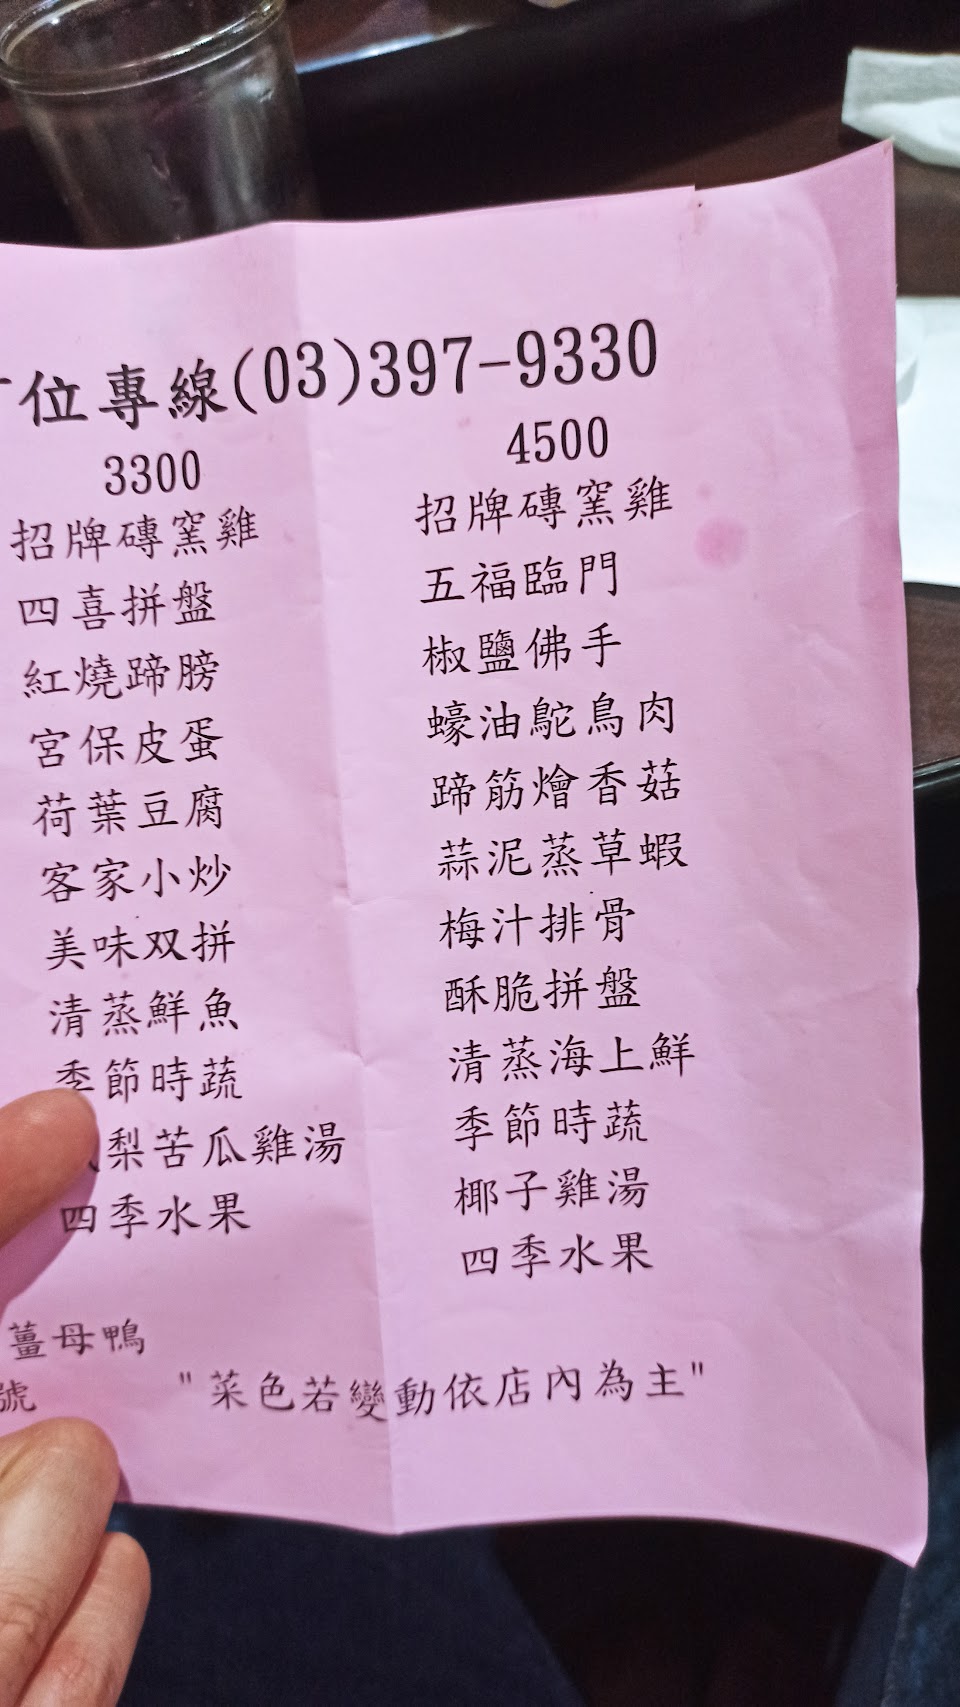 位專線(03)397-9330
3300
招牌磚窯雞
四喜拼盤
紅燒蹄膀
宮保皮蛋
荷葉豆腐
客家小炒
美味双拼
清蒸鮮魚
季節時蔬
梨苦瓜雞湯
四季水果
4500
招牌磚窯雞
五福臨門
椒鹽佛手
蠔油鴕鳥肉
蹄筋燴香菇
蒜泥蒸草蝦
梅汁排骨
酥脆拼盤
清蒸海上鮮
季節時蔬
椰子雞湯
四季水果
薑母鴨
號
"菜色若變動依店內為主"